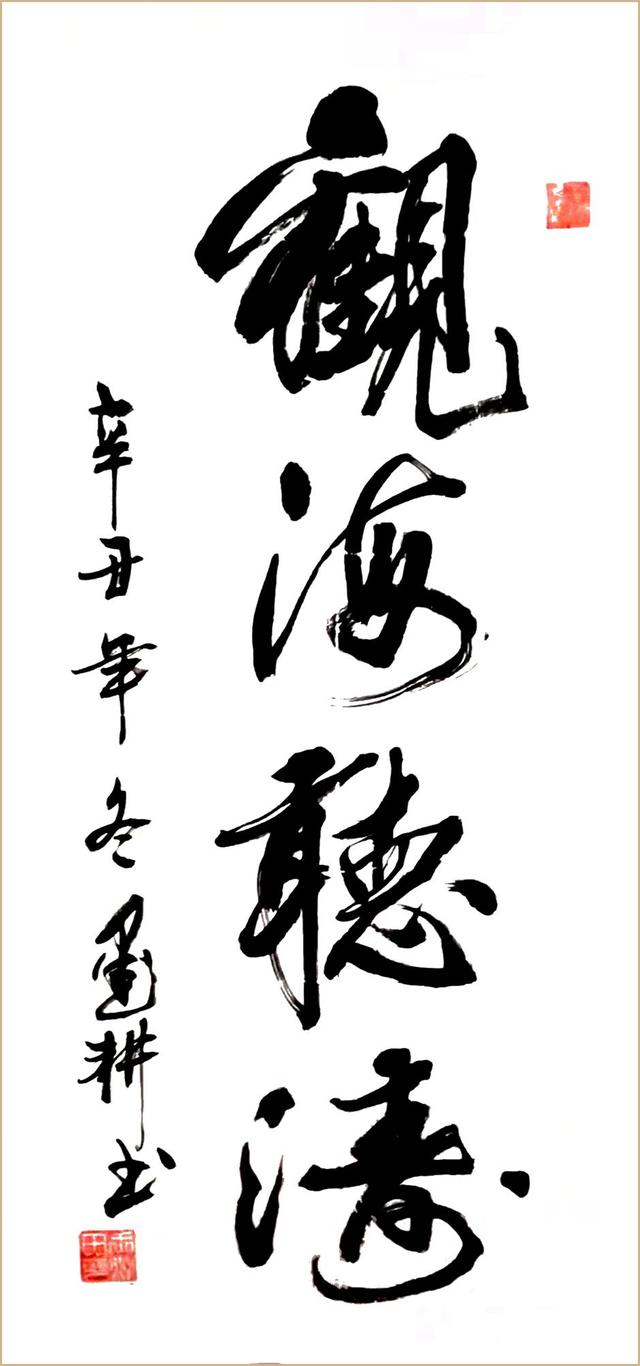 觀海聽濤
辛丑年冬耕书